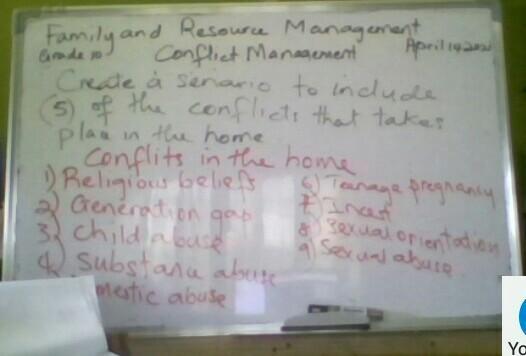 Family and Resource Management
Grade 10 Conflict Management April 19 2021
Create a senario to include
(5) of the conflicts that takes
place in the home
Conflits in the home
1) Religious beliefs
2) Generation gap
3) Child abuse
4) Substance abuse
mestic abuse
6) Teenage pregnancy
7) Incest
8) Sexual orientation
9) Sexual abuse
Yo